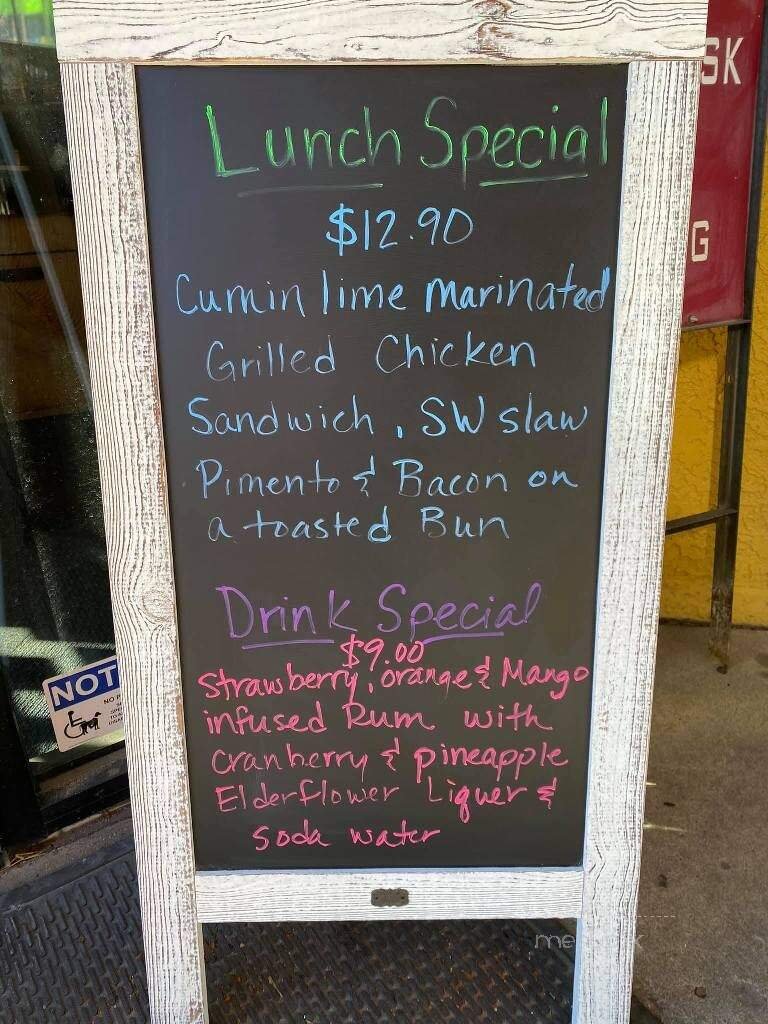 Lunch Special
$12.90
Cumin lime marinated
Grilled Chicken
Sandwich, SW slaw
Pimento & Bacon on
a toasted Bun
Drink Special
$9.00
Strawberry, orange & Mango
infused Rum with
cranberry & pineapple
Elderflower Liquer &
soda water
NOT
SK
G